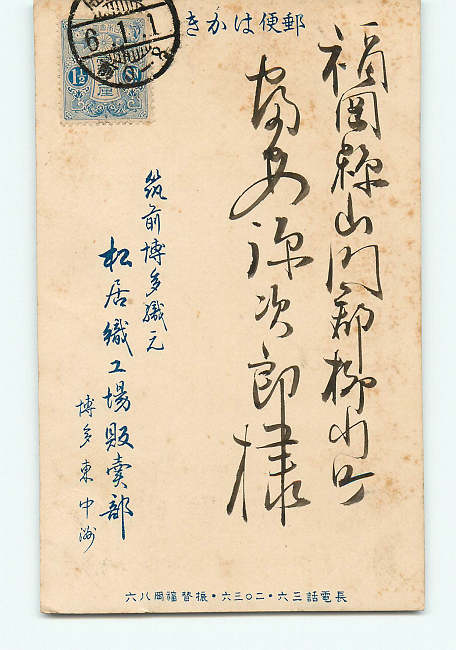 郵便はかき
6.1.1
1½
福岡縣山門郡柳川
安源次郎様
筑前博多織元
松居織工場販賣部
博多東中洲
長電話三六・二〇三六・振替福岡八六